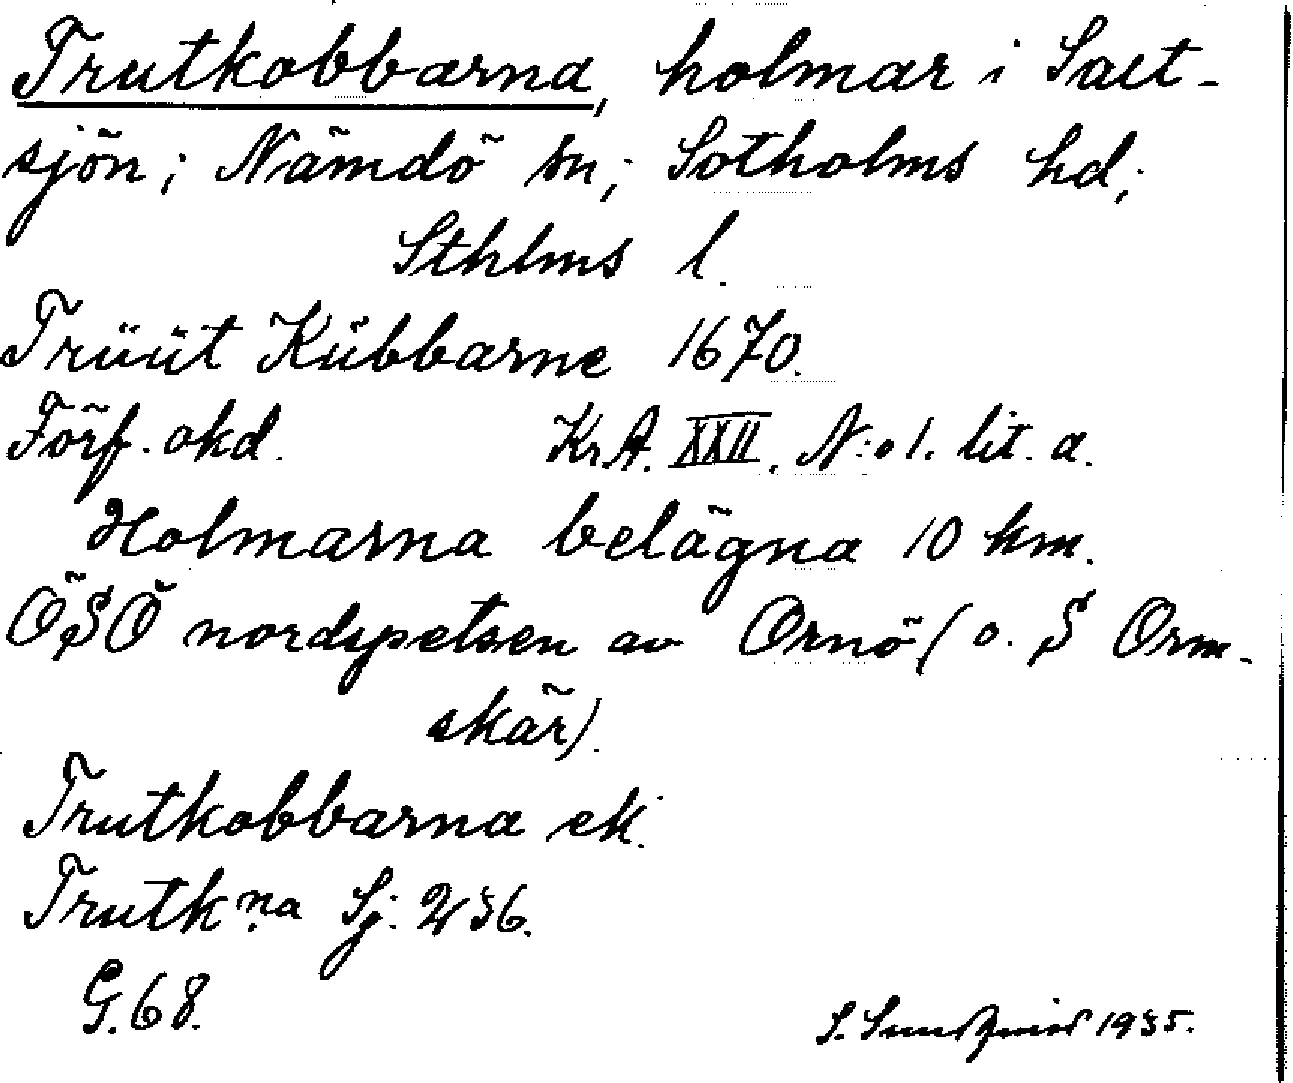 Trutkobbarna, holmar i Salt-
sjön; Nämdö sn; Sotholms hd;
Sthlms l.
Trüüt Kübbarne 1670.
Förf. okd. Kr.A. XXII. N:o 1. lit. a.
Holmarna belägna 10 km.
ÖSÖ nordspetsen av Ornö (o. S Orm-
skär).
Trutkobbarna ek.
Trutk:na Sj. 236.
G. 68.
S. 1935.